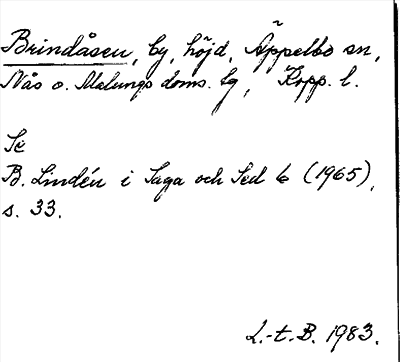 Brindåsen, by, höjd, Äppelbo sn,
Nås o. Malungs doms. bg, Kopp. l.
Se
B. Lindén i Saga och Sed 6 (1965),
s. 33.
L.-t. B. 1983.